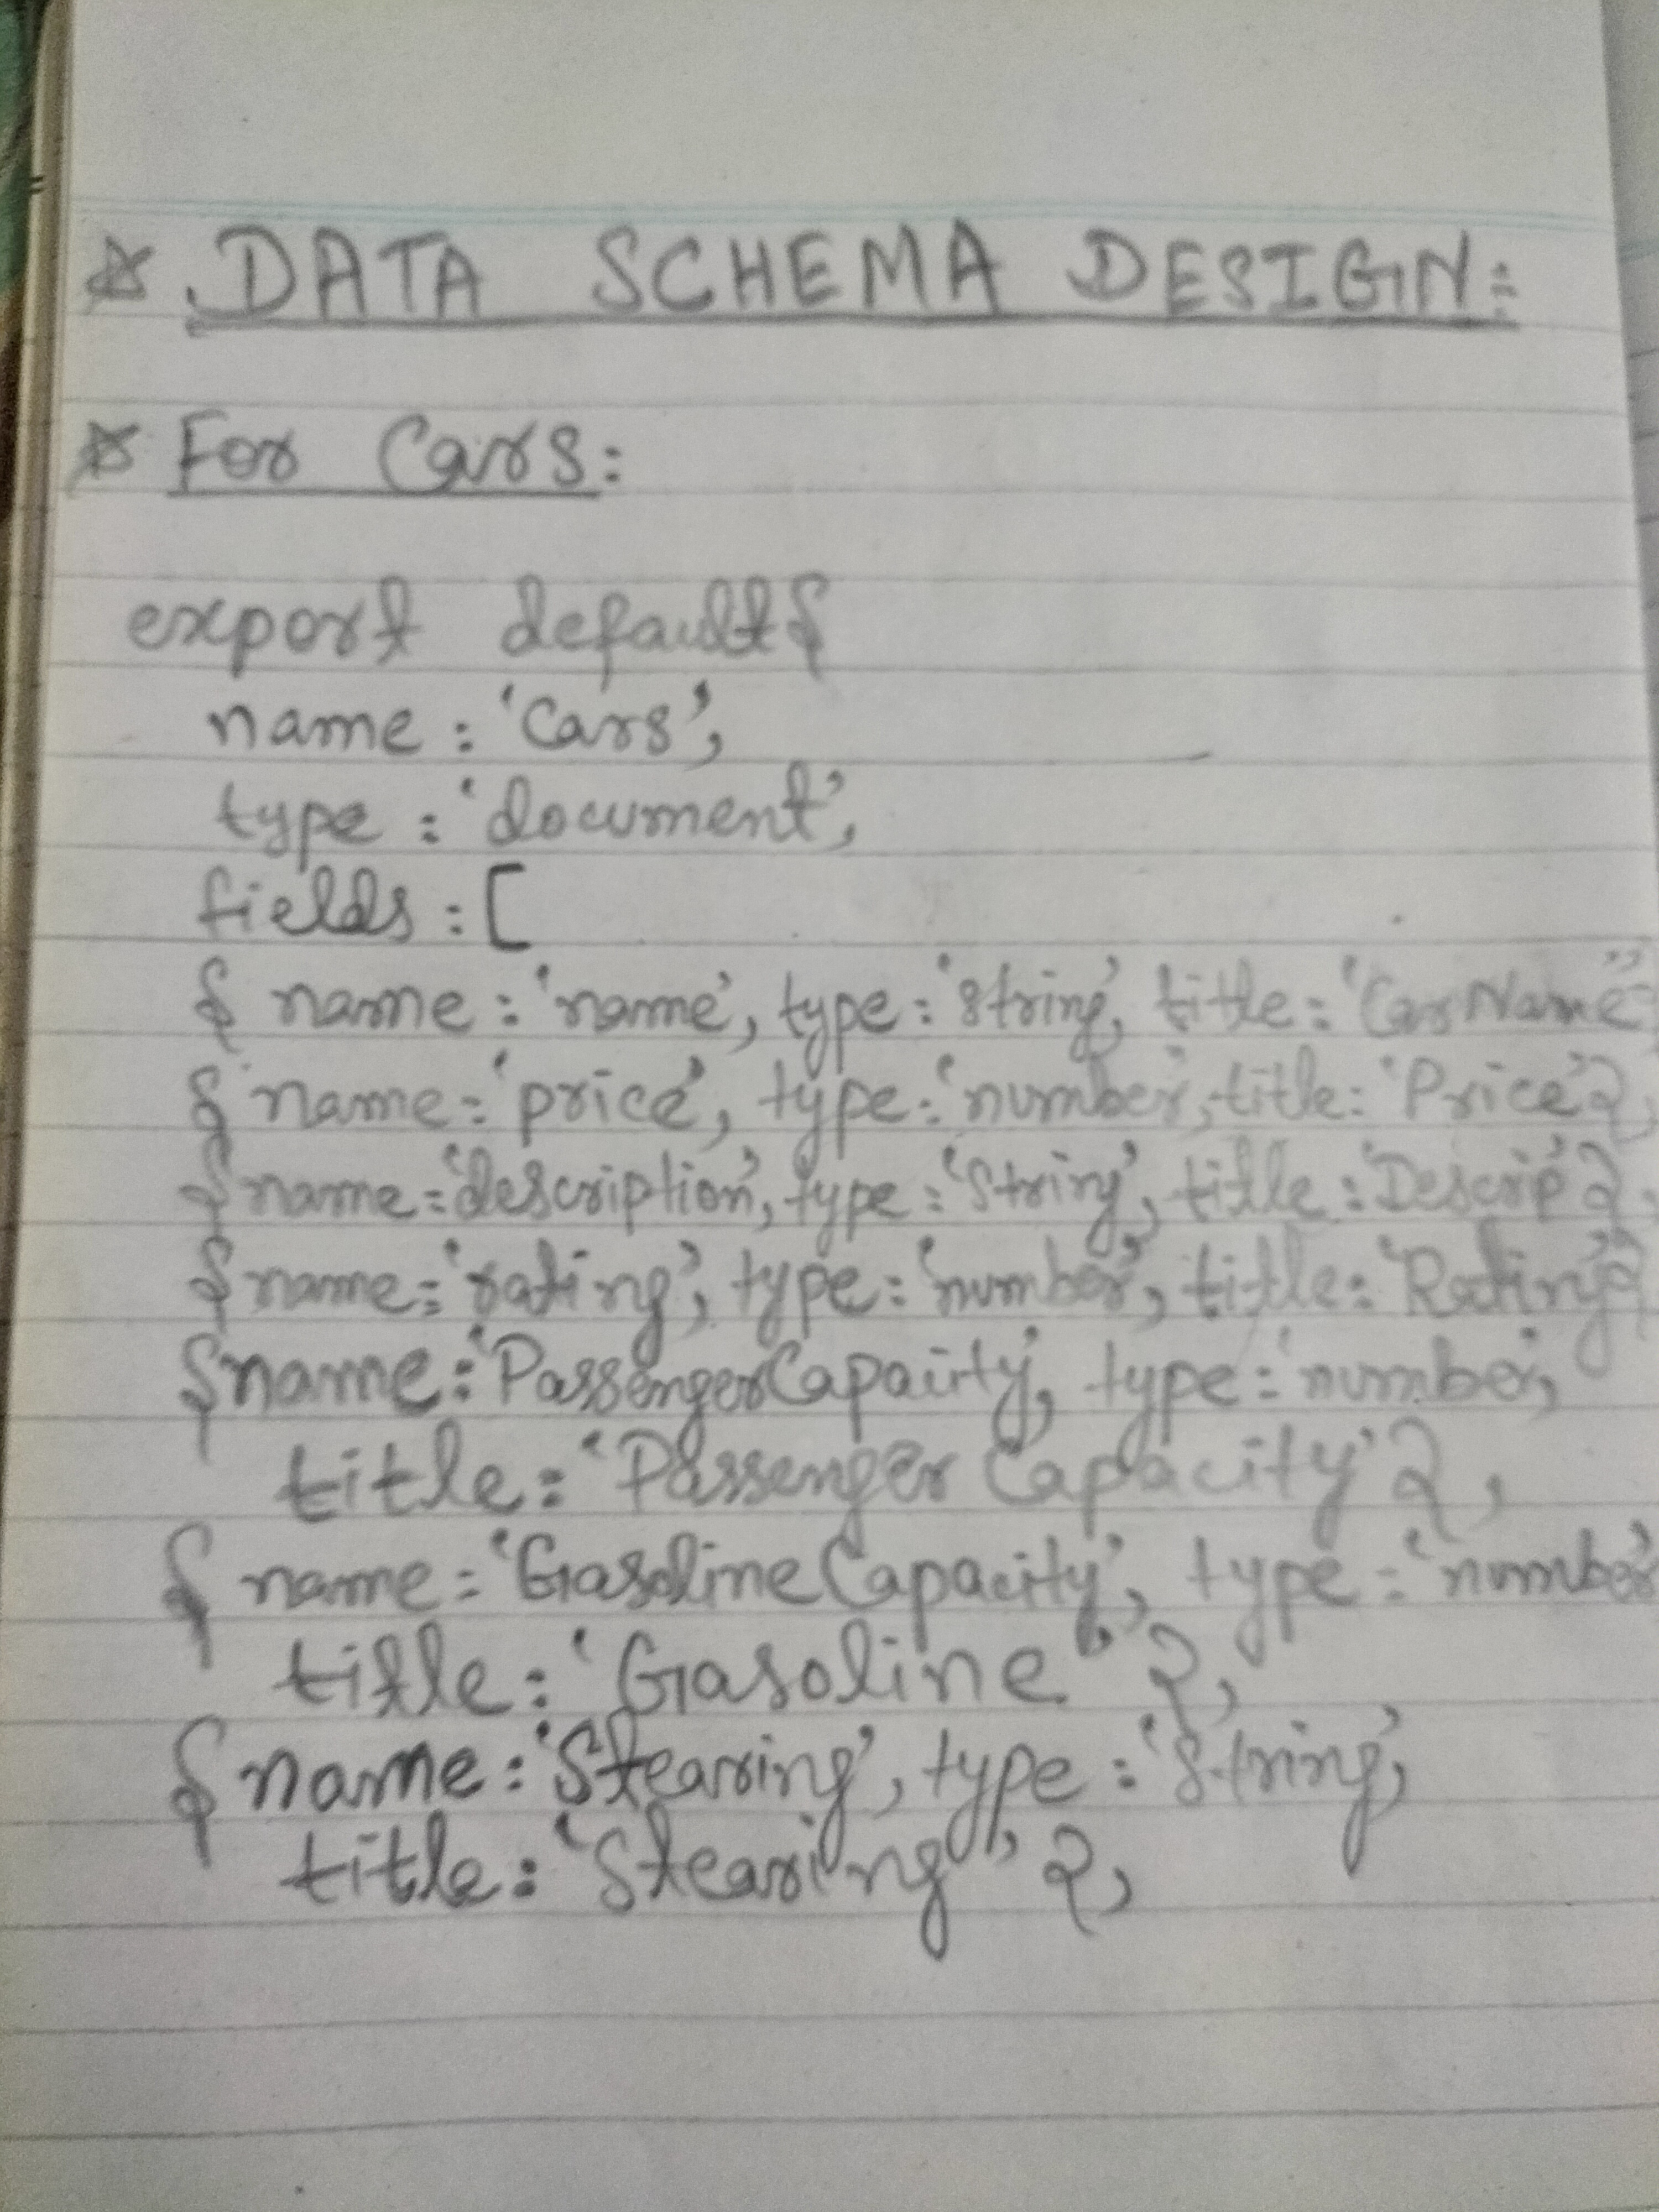 ☆ DATA SCHEMA DESIGN:
☆ For Cars:
export default{
name : 'Cars',
type : 'document',
fields : [
{ name : 'name', type : 'string', title : 'Car Name'
{ name : 'price', type : 'number', title : 'Price' },
{ name : 'description', type : 'String', title : 'Descrip' },
{ name : 'rating', type : 'number', title : 'Rating' }
{ name : 'PassengerCapacity', type : 'number',
title : 'Passenger Capacity' },
{ name : 'GasolineCapacity', type : 'number'
title : 'Gasoline' },
{ name : 'Stearing', type : 'String',
title : 'Stearing' },